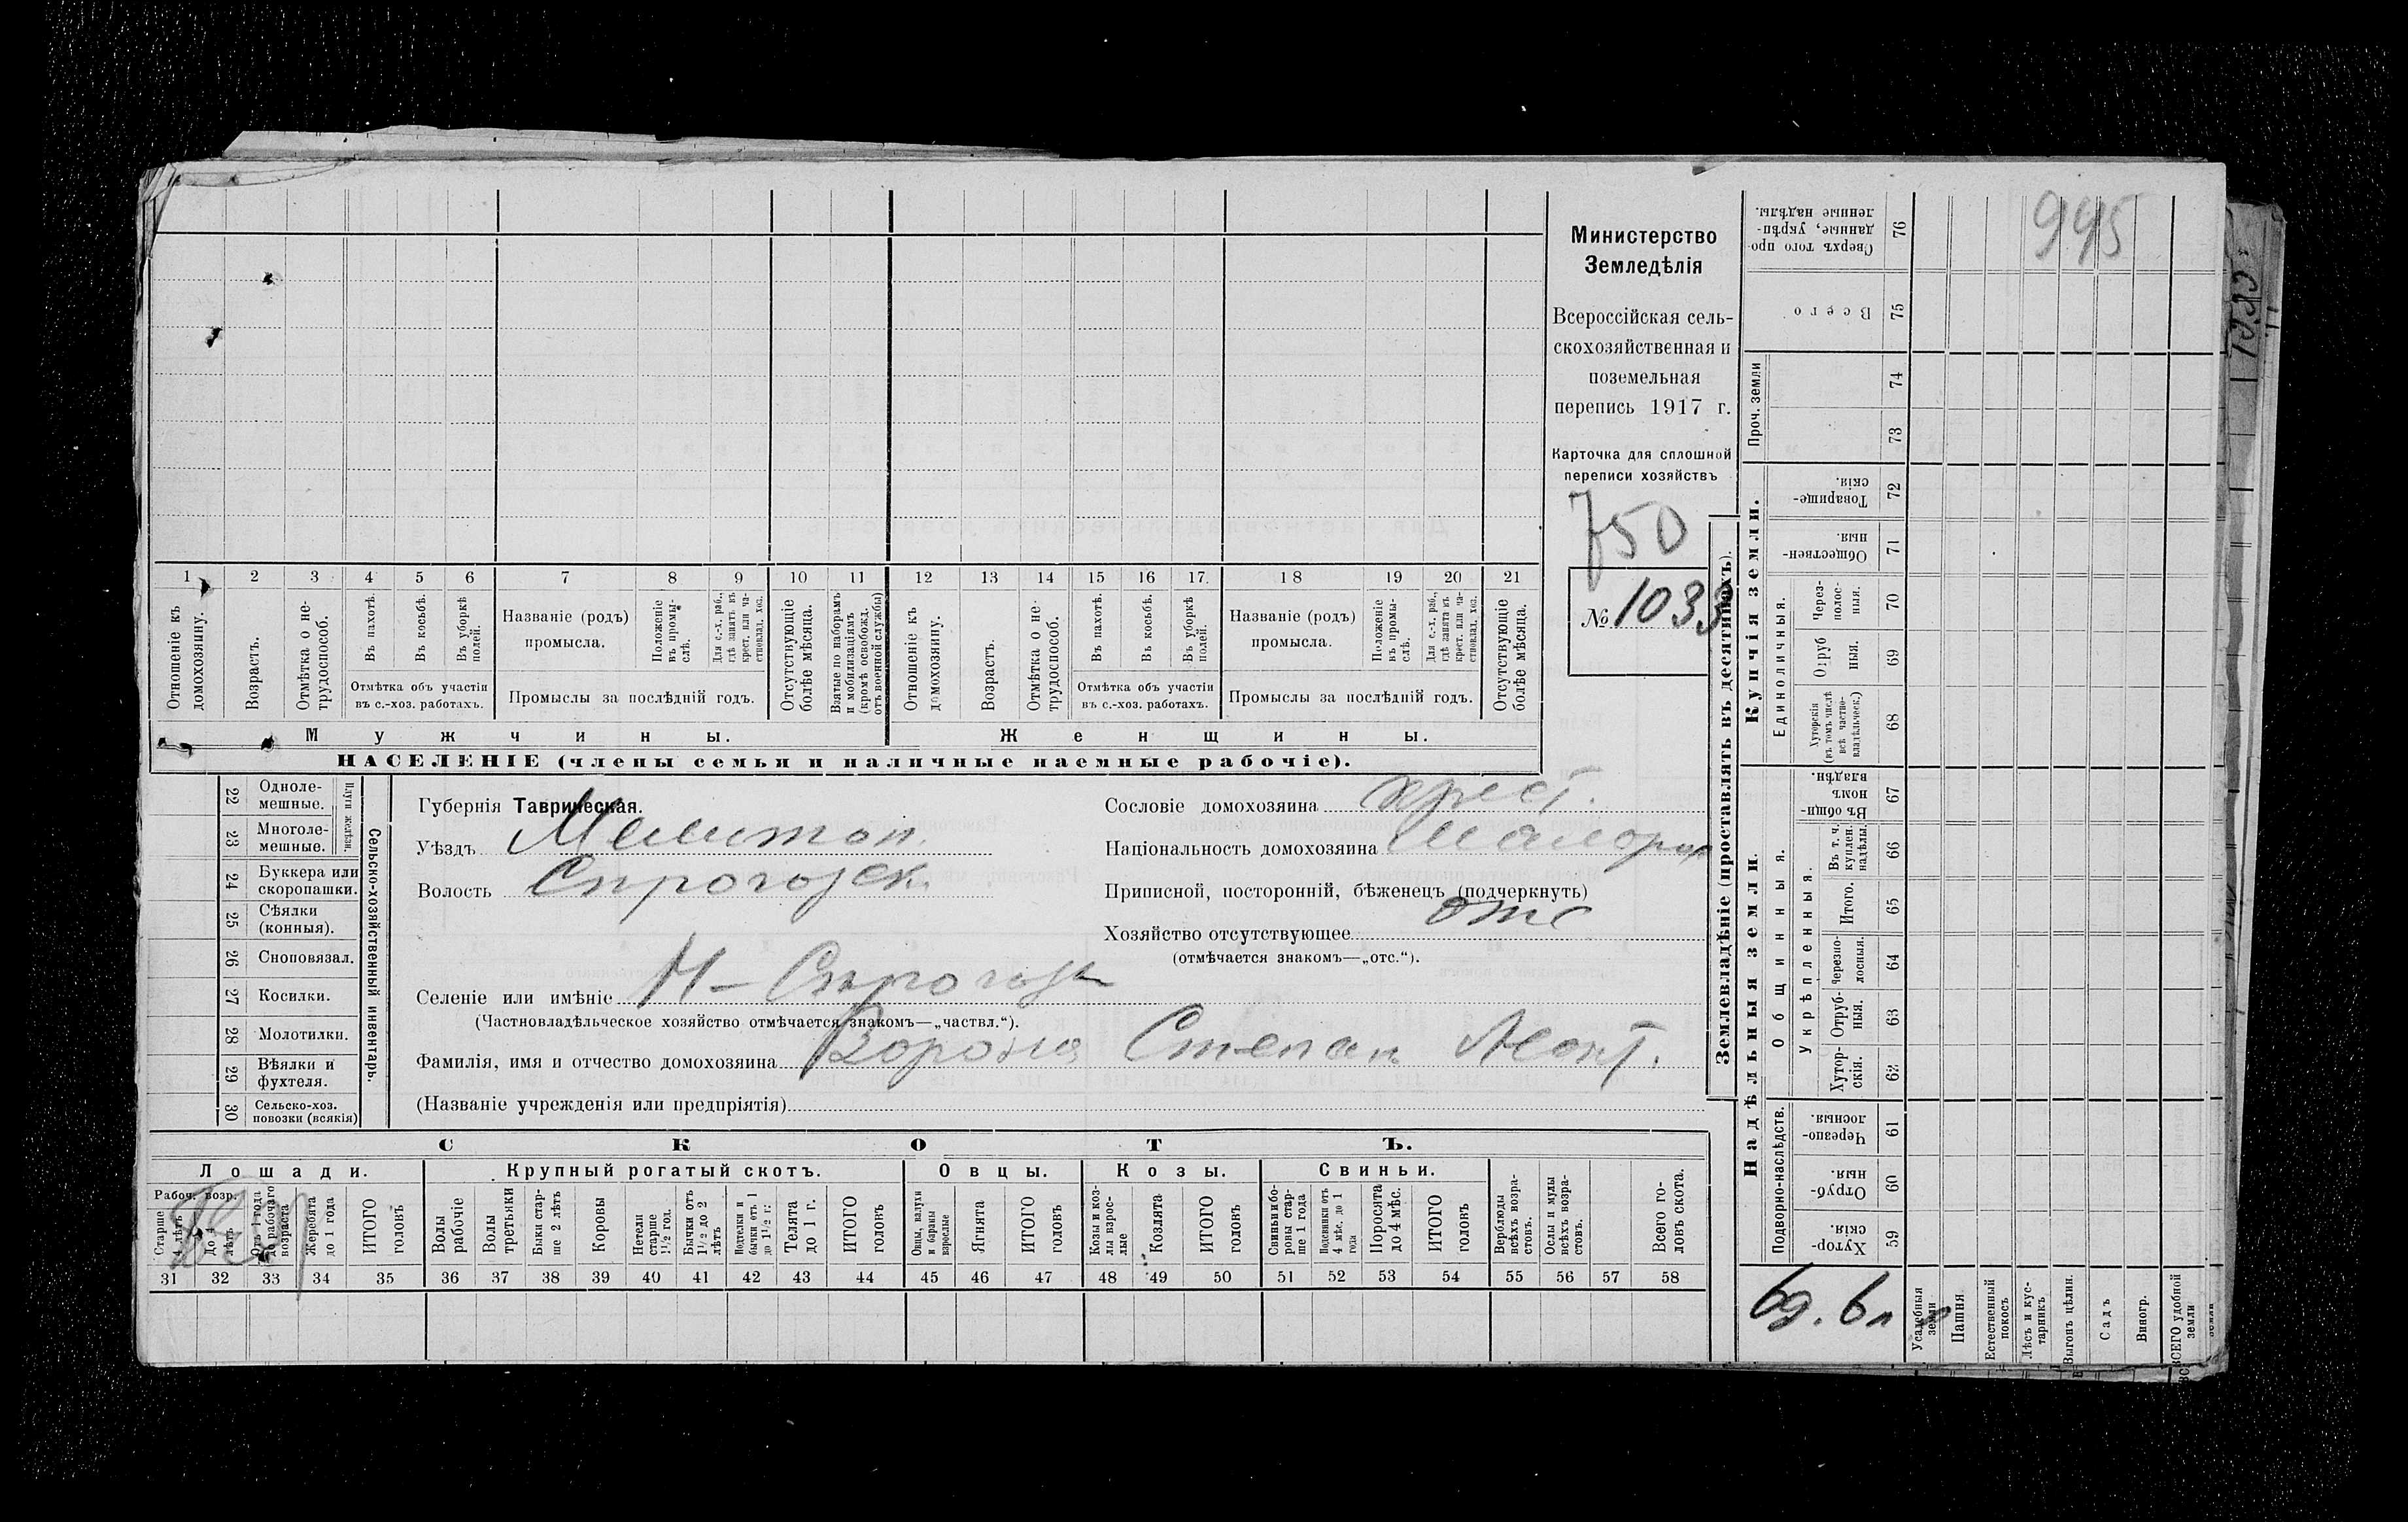 Министерство
Земледѣлія
Всероссійская сель-
скохозяйственная и
поземельная
перепись 1917 г.
Карточка для сплошной
переписи хозяйствъ
750
№ 1033
995
1 2 3 4 5 6 7 8 9 10 11 12 13 14 15 16 17. 18 19 20 21
Отношеніе къ домохозяину.
Возрастъ.
Отмѣтка о не-трудоспособ.
Въ пахотѣ.
Въ косьбѣ.
Въ уборкѣ полей.
Отмѣтка объ участіи
въ с.-хоз. работахъ.
Названіе (родъ)
промысла.
Положеніе въ промы-слѣ.
Для с.-х. раб., гдѣ занятъ въ крест. или ча-стновлад. хоз.
Промыслы за послѣдній годъ.
Отсутствующіе болѣе мѣсяца.
Взятые по наборамъ и мобилизаціямъ (кромѣ освобожд. отъ военной службы)
Отношеніе къ домохозяину.
Возрастъ.
Отмѣтка о не-трудоспособ.
Въ пахотѣ.
Въ косьбѣ.
Въ уборкѣ полей.
Отмѣтка объ участіи
въ с.-хоз. работахъ.
Названіе (родъ)
промысла.
Положеніе въ промы-слѣ.
Для с.-х. раб., гдѣ занята въ крест. или ча-стновлад. хоз.
Промыслы за послѣдній годъ.
Отсутствующіе болѣе мѣсяца.
Мужчины.
Женщины.
НАСЕЛЕНІЕ (члены семьи и наличные наемные рабочіе).
22 Одноле-мешные.
23 Многоле-мешные.
Плуги желѣзн.
24 Буккера или скоропашки.
25 Сѣялки (конныя).
26 Сноповязал.
27 Косилки.
28 Молотилки.
29 Вѣялки и фухтеля.
30 Сельско-хоз. повозки (всякія)
Сельско-хозяйственный инвентарь.
Губернія Таврическая.
Уѣздъ Мелитоп.
Волость Сирогозск.
Селеніе или имѣніе Н-Сирогозы
(Частновладѣльческое хозяйство отмѣчается знакомъ—„частвл.“).
Фамилія, имя и отчество домохозяина Ворона Степан Леонт.
(Названіе учрежденія или предпріятія)
Сословіе домохозяина крест.
Національность домохозяина малорус
Приписной, посторонній, бѣженецъ (подчеркнуть)
Хозяйство отсутствующее отс
(отмѣчается знакомъ—„отс.“).
СКОТЪ.
Лошади.
Рабоч. возр.
Старше 4 лѣтъ
До 4 лѣтъ
Отъ 1 года до рабочаго возраста
Жеребята до 1 года
ИТОГО головъ
Крупный рогатый скотъ.
Волы рабочіе
Волы третьяки
Быки стар-ше 2 лѣтъ
Коровы
Нетели старше 1½ год.
Бычки отъ 1½ до 2 лѣтъ
Подтелки и бычки отъ 1 до 1½ г.
Телята до 1 г.
ИТОГО головъ
Овцы.
Овцы, валухи и бараны взрослые
Ягнята
ИТОГО головъ
Козы.
Козы и коз-лы взрос-лые
Козлята
ИТОГО головъ
Свиньи.
Свиньи и бо-ровы стар-ше 1 года
Подсвинки отъ 4 мѣс. до 1 года
Поросята до 4 мѣс.
ИТОГО головъ
Верблюды всѣхъ возра-стовъ.
Ослы и мулы всѣхъ возра-стовъ.
Всего го-ловъ скота.
31 32 33 34 35 36 37 38 39 40 41 42 43 44 45 46 47 48 49 50 51 52 53 54 55 56 57 58
Землевладѣніе (проставлять въ десятинахъ).
Купчія земли.
Надѣльныя земли.
Сверхъ того про-данные, укрѣп-ленные надѣлы. 76
Всего 75
Проч. земли
74
73
Товарище-скія. 72
Обществен-ныя. 71
Единоличныя.
Через-полос-ныя. 70
Отруб ныя. 69
Хуторскія (въ томъ числѣ всѣ частно-владѣльческ.) 68
Въ общи-номъ владѣн. 67
Общинныя.
Укрѣпленныя.
Въ т. ч. куплен. надѣлы. 66
Итого. 65
Черезпо-лосныя. 64
Отруб-ныя. 63
Хутор-скія. 62
Подворно-наслѣдств.
Черезпо-лосныя. 61
Отруб-ныя. 60
Хутор-скія. 59
Усадебныя земли
Пашня
Естественный покосъ
Лѣсъ и кус-тарникъ
Выгонъ цѣлин.
Садъ
Виногр.
ВСЕГО удобной земли